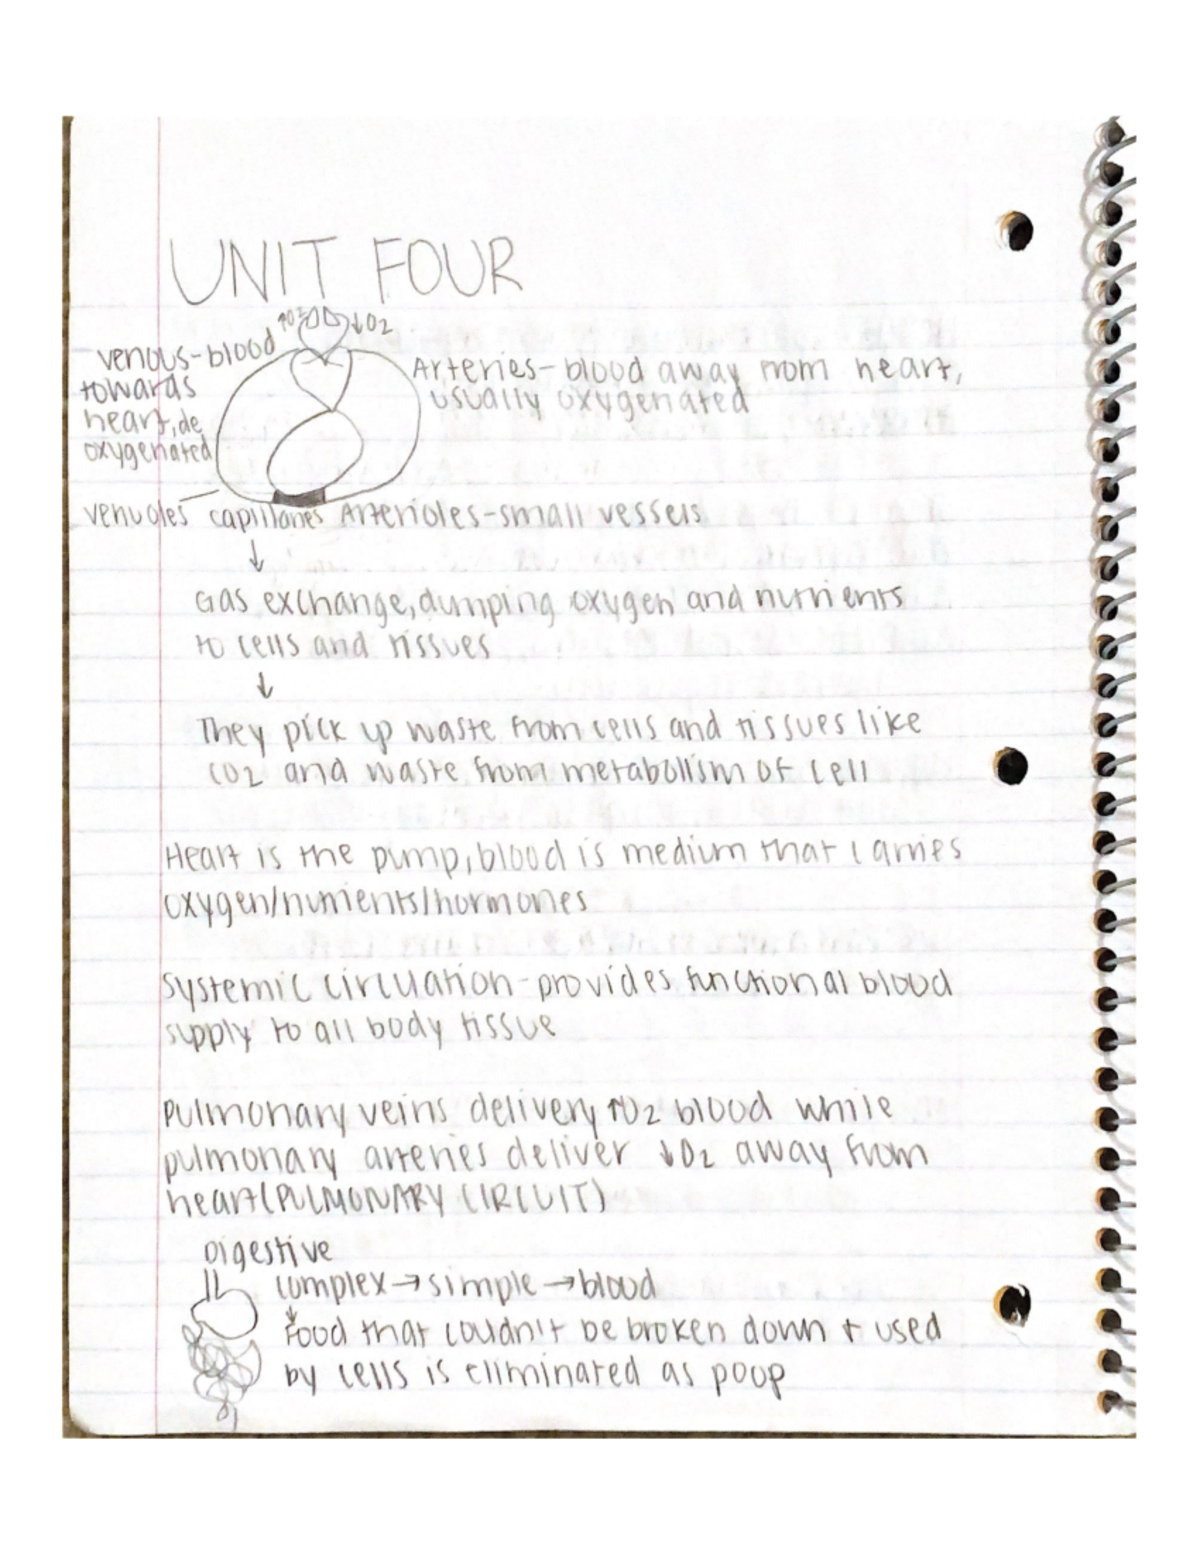 UNIT FOUR
↑O2 ↓O2
venous-blood
towards
heart, de
oxygenated
Arteries-blood away from heart,
usually oxygenated
venuoles capillaries Arterioles-small vessels
↓
Gas exchange, dumping oxygen and nutrients
to cells and tissues
↓
They pick up waste from cells and tissues like
CO2 and waste from metabolism of cell
Heart is the pump, blood is medium that carries
oxygen/nutrients/hormones
Systemic circulation-provides functional blood
supply to all body tissue
Pulmonary veins delivery ↑O2 blood while
pulmonary arteries deliver ↓O2 away from
heart(PULMONARY CIRCUIT)
Digestive
complex→simple→blood
↓
Food that couldn't be broken down + used
by cells is eliminated as poop